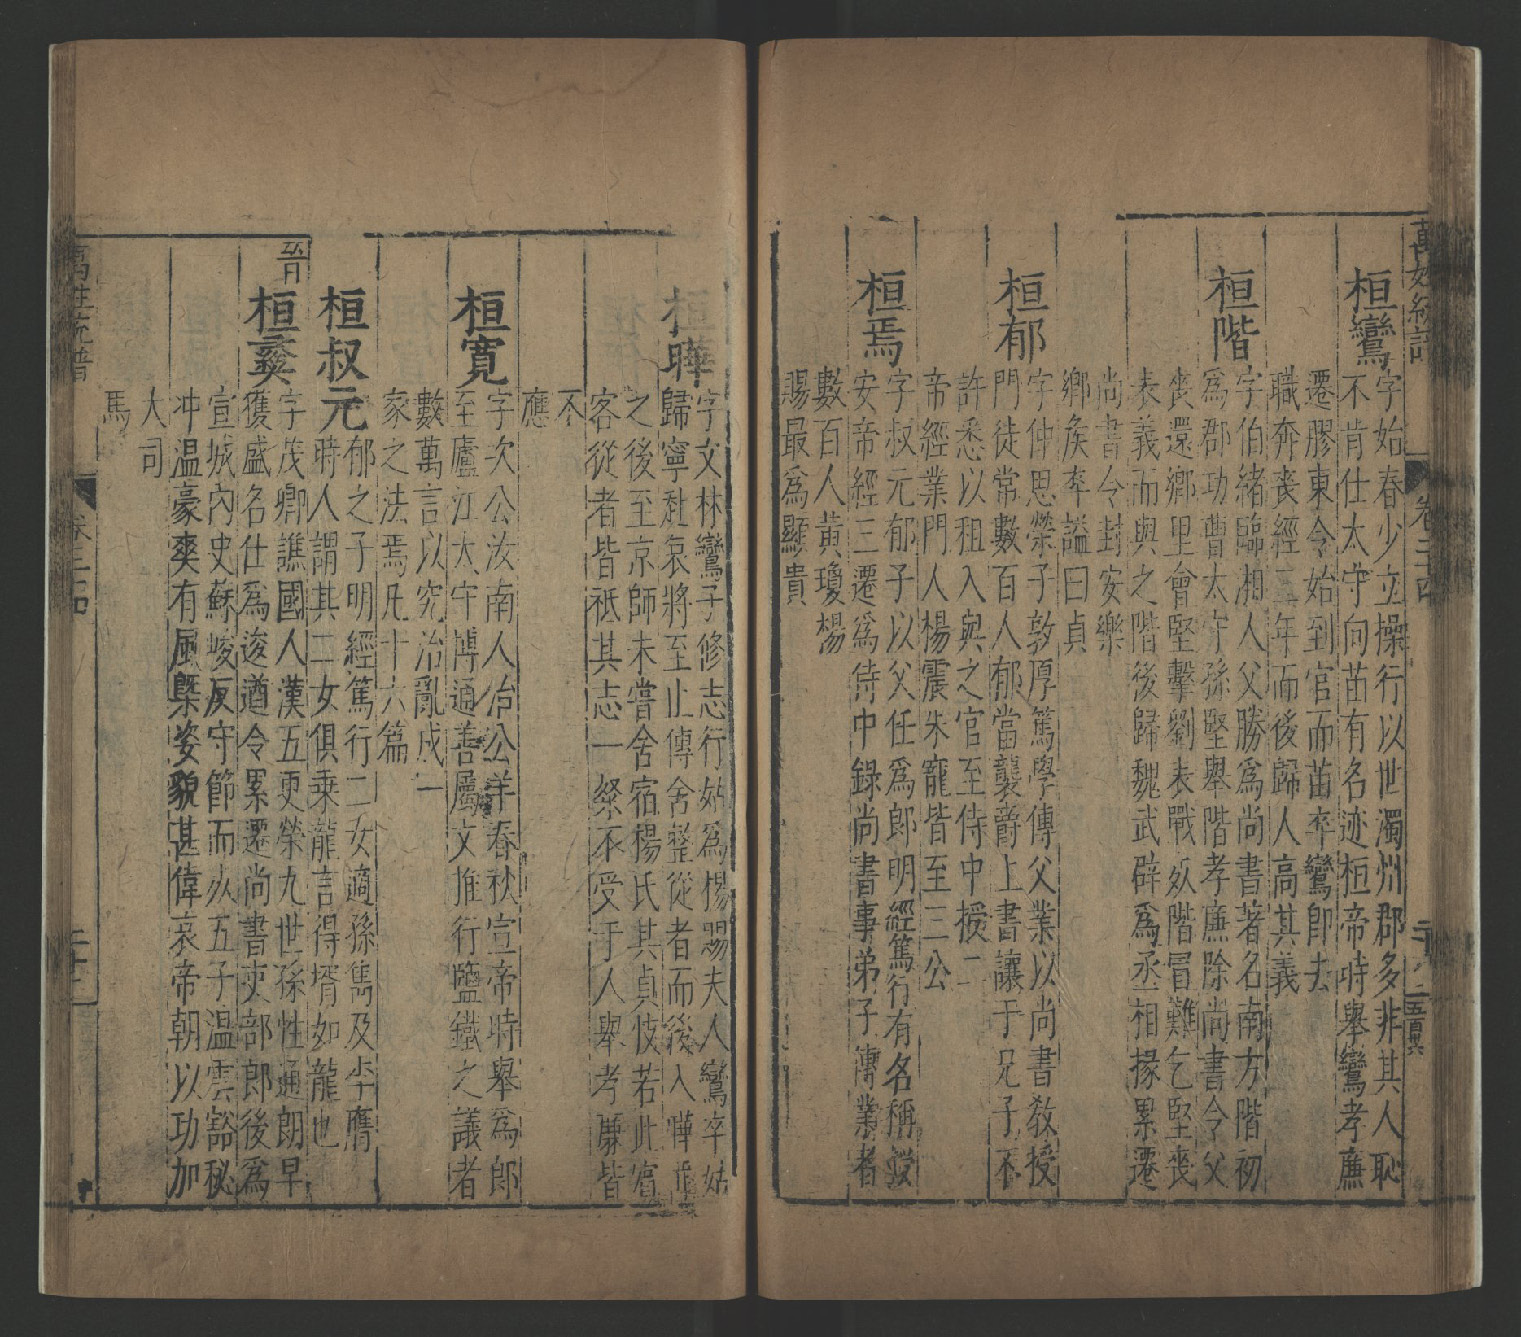 萬姓統譜
卷二十四
桓鸞
字始春少立操行以世濁州郡多非其人恥
不肯仕太守向苗有名迹桓帝時舉鸞孝廉
遷膠東令始到官而苗卒鸞卽去
職奔喪經三年而後歸人高其義
桓階
字伯緒臨湘人父勝爲尚書著名南方階初
爲郡功曹太守孫堅舉階孝廉除尚書令父
喪還鄉里會堅擊劉表戰歿階冒難乞堅喪
表義而與之階後歸魏武辟爲丞相掾累遷
尚書令封安樂
鄉矦卒謚曰貞
桓郁
字仲思榮子敦厚篤學傳父業以尚書教授
門徒常數百人郁當襲爵上書讓于兄子不
許悉以租入與之官至侍中授二
帝經業門人楊震朱寵皆至三公
桓焉
字叔元郁子以父任爲郎明經篤行有名稱授
安帝經三遷爲侍中錄尚書事弟子傳業者
數百人黃瓊楊
賜最爲顯貴
桓曄
字文林鸞子修志行姑爲楊賜夫人鸞卒姑
歸寧赴哀將至止傳舍整從者而後入曄
之後至京師未嘗舍宿楊氏其貞忮若此賓
客從者皆祗其志一餐不受于人舉孝廉皆
不
應
桓寬
字次公汝南人治公羊春秋宣帝時舉爲郎
至廬江太守博通善屬文推行鹽鐵之議者
數萬言以究治亂成一
家之法焉凡十六篇
桓叔元
郁之子明經篤行二女適孫雋及李膺
時人謂其二女俱乘龍言得壻如龍也
晉
桓彝
字茂卿譙國人漢五更榮九世孫性通朗早
獲盛名仕爲逡遒令累遷尚書吏部郎後爲
宣城內史蘇峻反守節而死五子溫雲豁秘
冲溫豪爽有風槩姿貌甚偉哀帝朝以功加
大司
馬
萬姓統譜
卷二十四